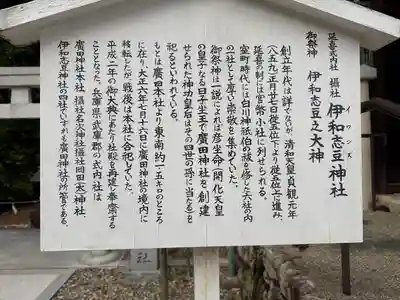 延喜式内社 摂社 伊和志豆神社
イワシヅ
御祭神 伊和志豆之大神
創立年代は詳でないが、清和天皇貞観元年
(八五九)正月廿七日従五位下より従位上に進み、
延喜の制には官幣小社に列せられる。
室町時代には白川神祇伯の祓を修した六社の内
の一社として厚い崇敬を集めていた。
御祭神は一説によれば彦坐命(開化天皇
の皇子なる日子坐王で廣田神社を創建
せられた神功皇后はその四世の孫に当たる)を
祀るといわれている。
もとは廣田本社より東南約一・五キロのところ
に在り、大正六年七月十六日に廣田神社の境内に
移転したが、戦後は本社に合祀していた。
平成二年の御大典にあたり社殿を再建し奉斎する
こととなった。兵庫県・武庫郡の式内社は
廣田神社本社、摂社名次神社、摂社岡田(太)神社、
伊和志豆神社の四社でいずれも廣田神社の所管である。